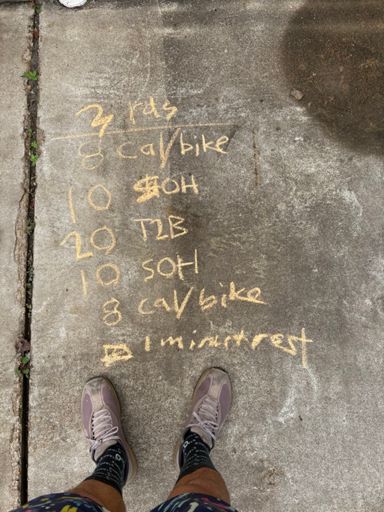 3 rds
8 cal/bike
10 SOH
20 T2B
10 SOH
8 cal/bike
1 minute rest